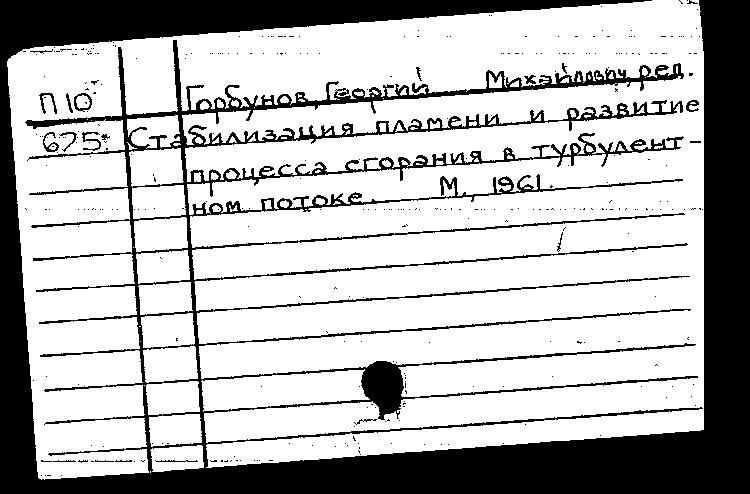 П10 Горбунов, Георгий Михайлович, ред.
675 Стабилизация пламени и развитие
процесса сгорания в турбулент-
ном потоке. М., 1961.